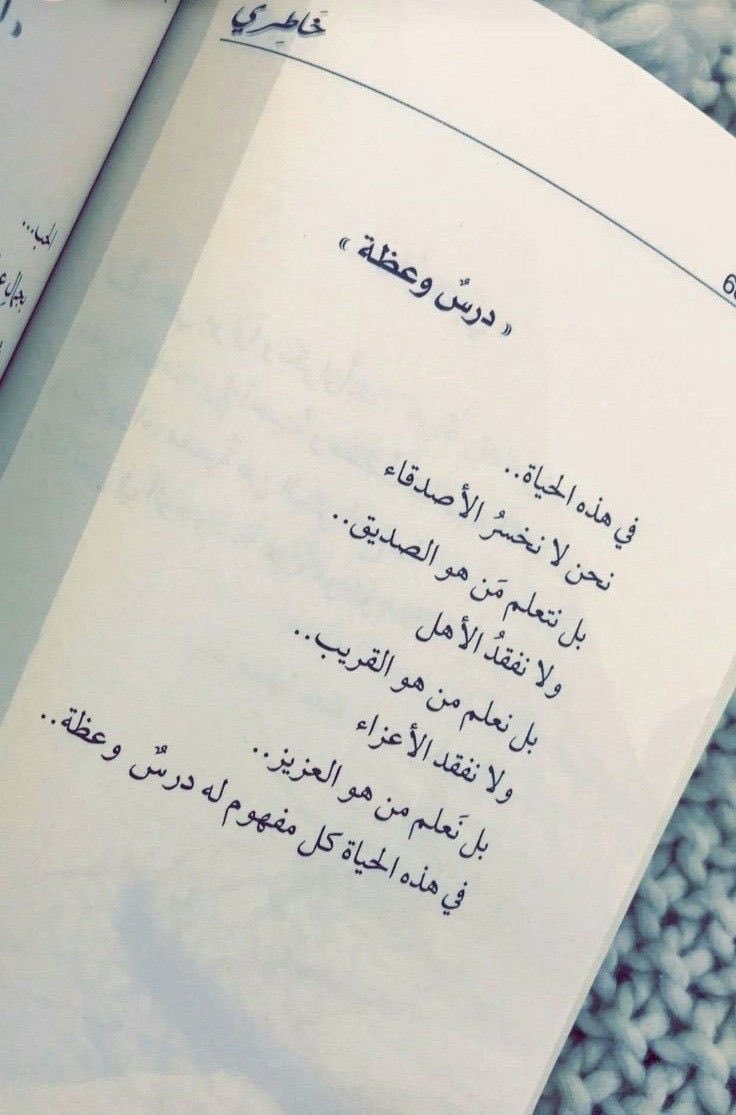 خَاطِري
« درسٌ وعظة »
في هذه الحياة..
نحن لا نخسرُ الأصدقاء
بل نتعلم مَن هو الصديق..
ولا نفقدُ الأهل
بل نعلم من هو القريب..
ولا نفقد الأعزاء
بل نَعلم من هو العزيز..
في هذه الحياة كل مفهوم له درسٌ وعظة..
الحب...